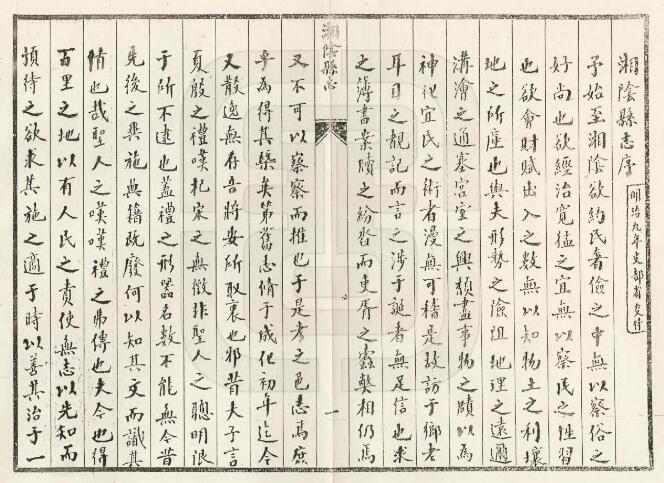 湘陰縣志序
明治九年文部省交付
予始至湘陰欲約民奢儉之中無以察俗之
好尚也欲經治寬猛之宜無以察民之性習
也欲會財賦出入之數無以知物土之利壤
地之所產也與夫形勢之險阻地理之遠邇
溝澮之通塞宮室之興頹盡事物之賾以為
神化宜民之術者漫無可稽是故訪于鄉者
耳目之覩記而言之涉于誕者無足信也求
之簿書案牘之紛沓而吏胥之蠹弊相仍焉
湘陰縣志
一
又不可以蔡察而推也于是考之邑志焉庶
乎為得其槩矣第舊志脩于成化初年迄今
又散逸無存吾將安所取衷也邪昔夫子言
夏殷之禮嘆杞宋之無徵非聖人之聰明限
于所不逮也蓋禮之形器名數不能無今昔
先後之異施典籍既廢何以知其文而識其
情也哉聖人之嘆嘆禮之弗傳也夫今也得
百里之地以有人民之責使無志以先知而
預待之欲求其施之適于時以善其治于一